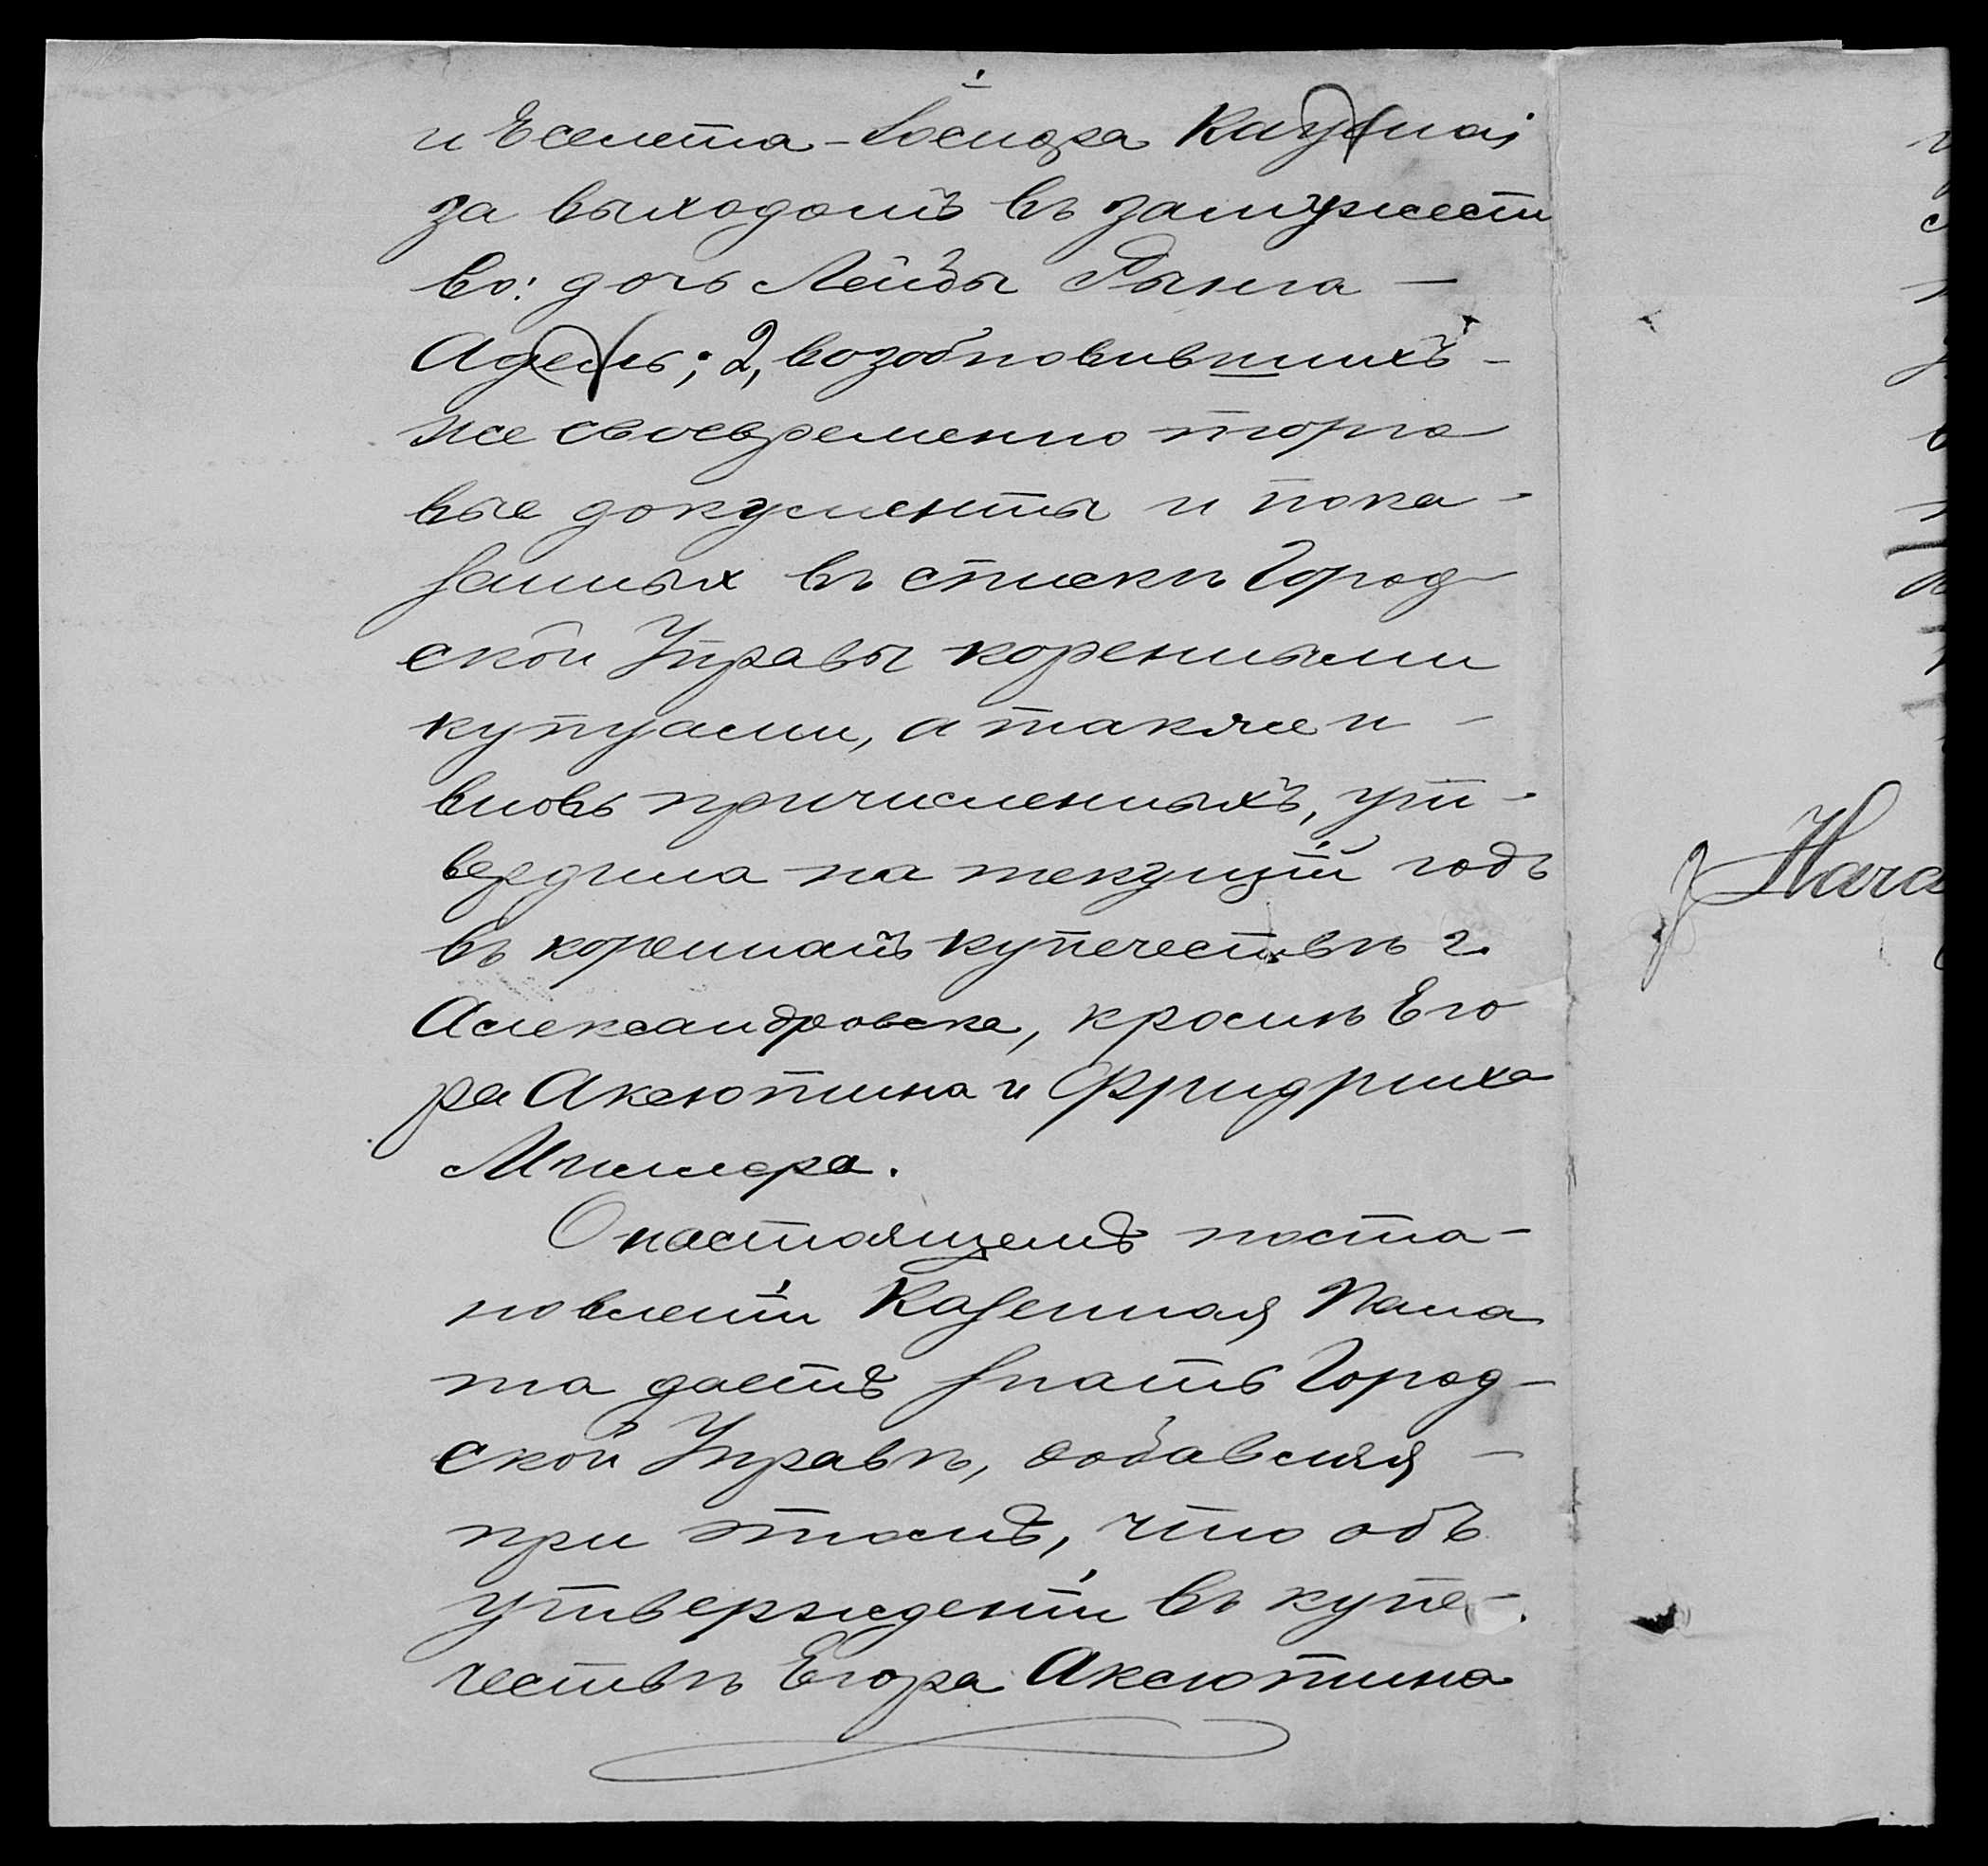 и Еселета-Іосифа Кауфман;
за выходомъ въ замужест
во: дочь Лейбы Рынга –
Адель; 2, возобновившихъ-
же своевременно торго
вые документы и пока-
занных въ списки Город
ской Управы коренными
купцами, а также и –
вновь причисленныхъ, ут-
вердила на текущій годъ
въ коренномъ купечествѣ г.
Александровска, кромѣ Его
ра Аксютина и Фридриха
Миллера.
О настоящемъ поста-
новленіи Казенная Пала
та даетъ знать Город-
ской Управѣ, добавляя –
при этомъ, что объ
утвержденіи въ купе-
чествѣ Егора Аксютина